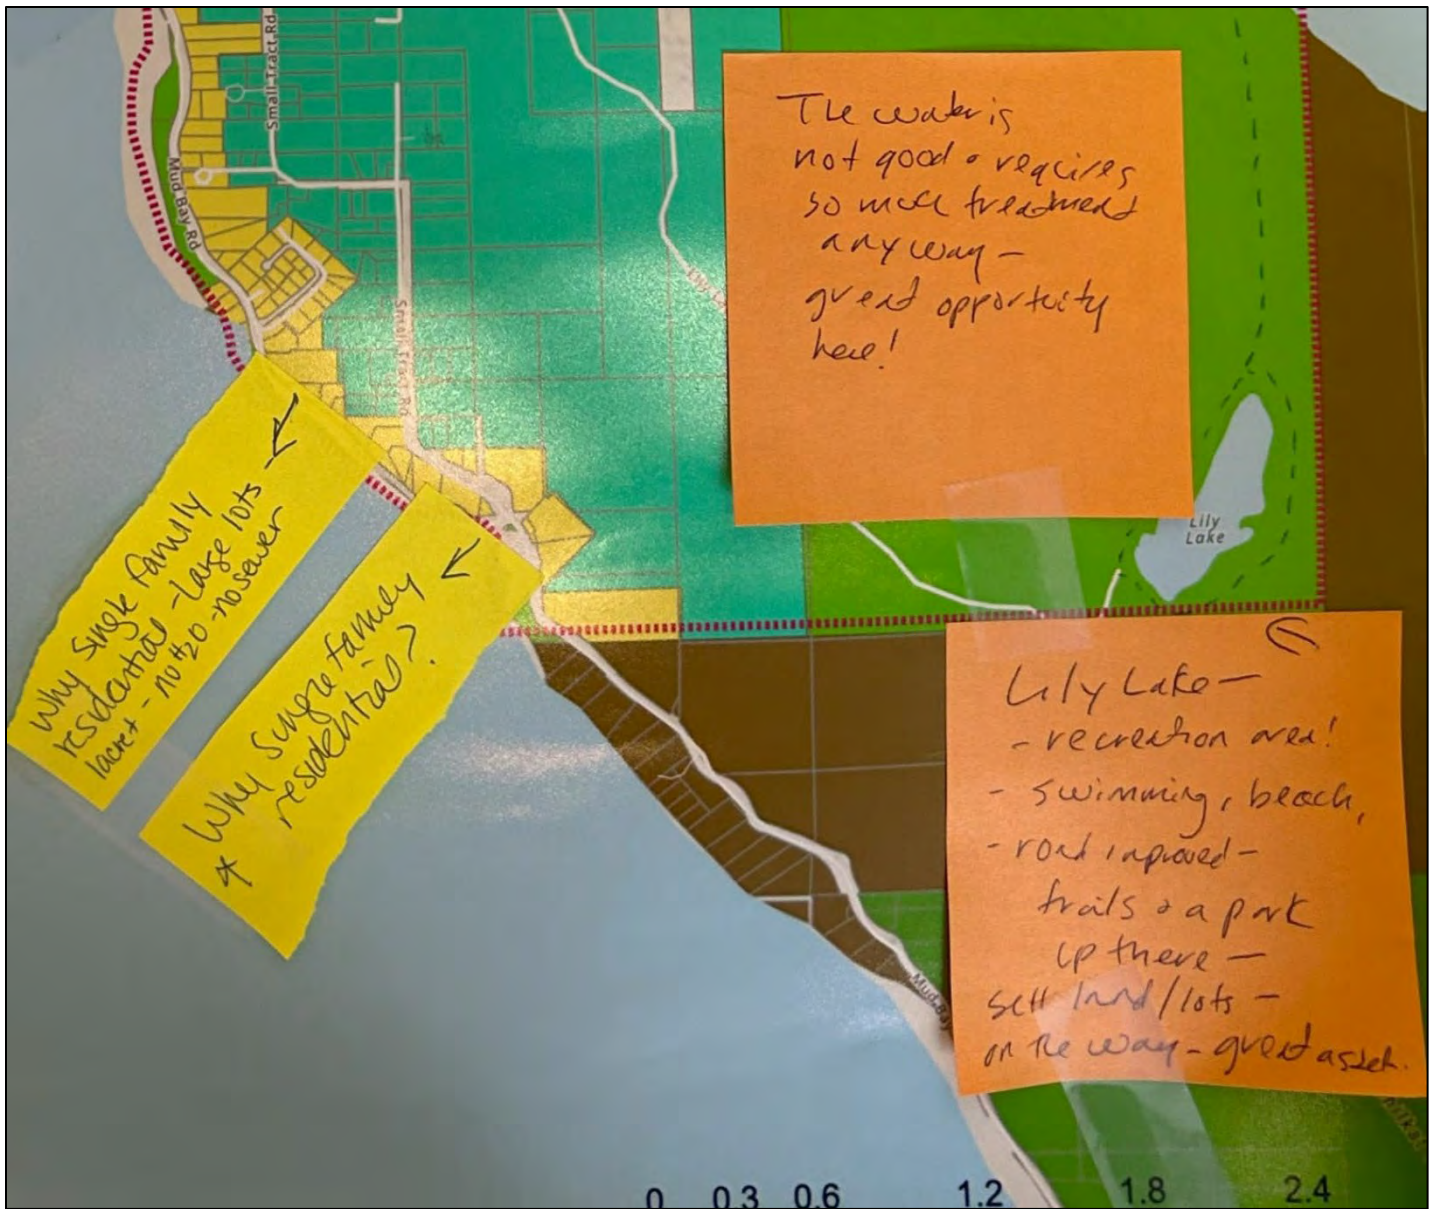 Small Tract Rd
Mud Bay Rd
Small Tract Rd
The water is
not good & requires
so much treatment
anyway –
great opportunity
here!
Lily
Lake
Why Single Family
residential - large lots -
1acre+ - no H20 - no sewer
* Why single family
residential?
Lily Lake —
- recreation area!
- swimming, beach,
- road improved –
trails & a park
up there —
sell land/lots –
on the way – great asset.
Mud Bay
0 0.3 0.6 1.2 1.8 2.4